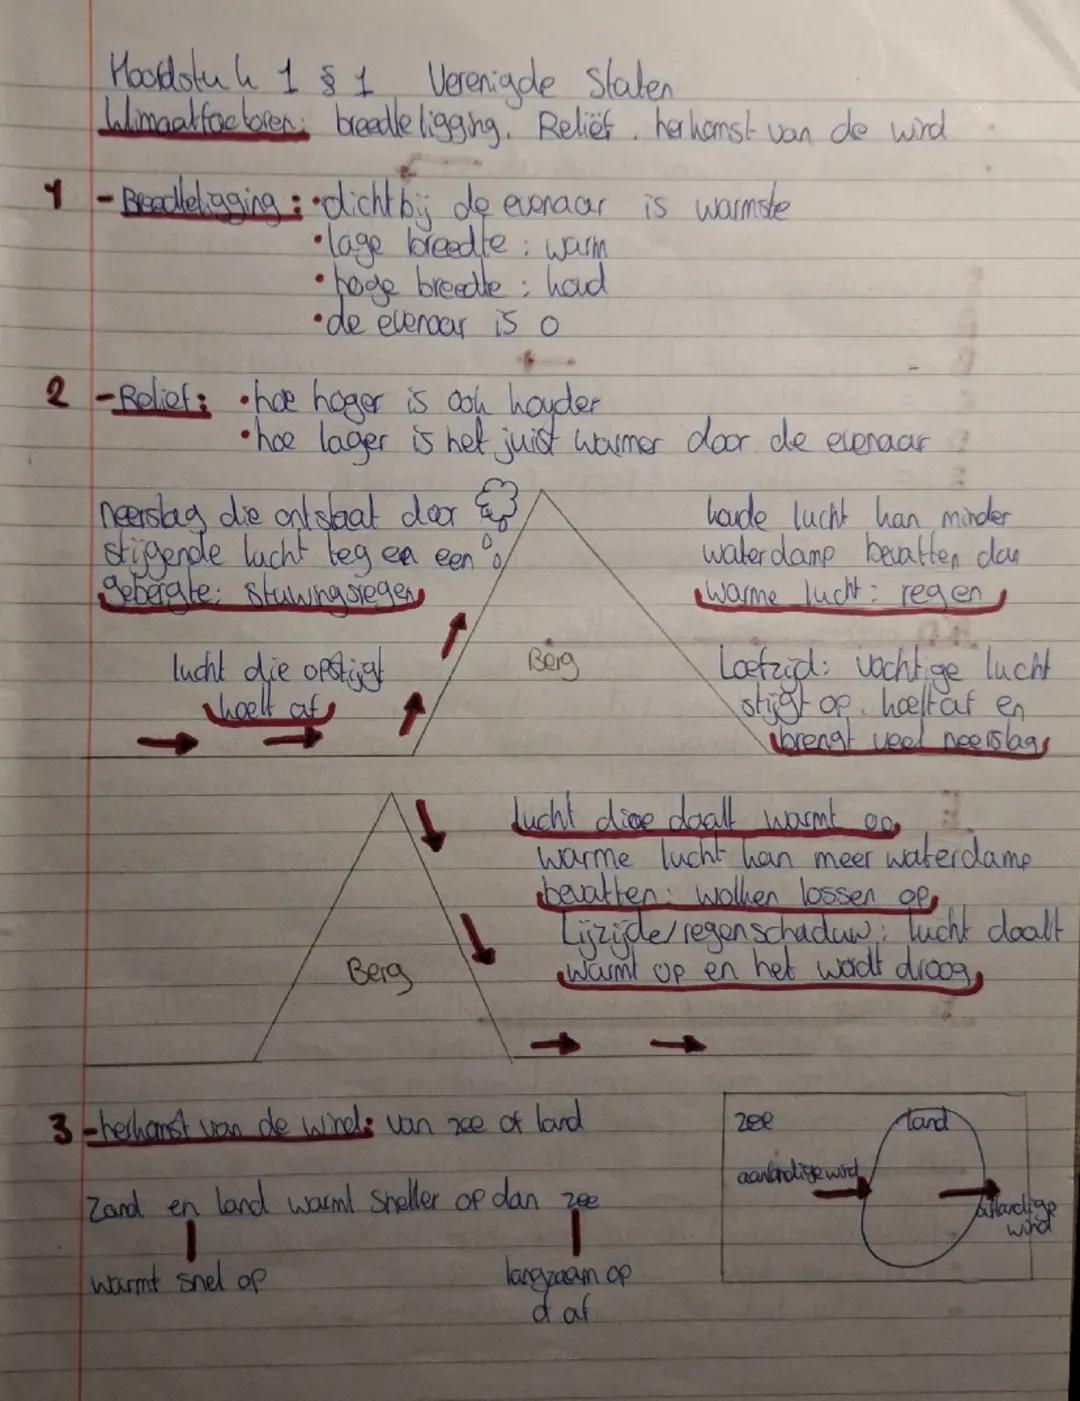 Hoofdstuk 1 § 1 Verenigde Staten
klimaatfactoren: breedteligging. Reliëf. herkomst van de wind
1 - Breedteligging: • dichtbij de evenaar is warmste
• lage breedte: warm
• hoge breedte: koud
• de evenaar is 0
2 - Relief: • hoe hoger is ook kouder
• hoe lager is het juist warmer door de evenaar
neerslag die ontstaat door
stijgende lucht tegen een
gebergte: stuwingsregen
lucht die opstijgt
koelt af
Berg
koude lucht kan minder
waterdamp bevatten dan
warme lucht: regen
Loefzijd: vochtige lucht
stijgt op. koelt af en
brengt veel neerslag
Berg
lucht die daalt warmt op
warme lucht kan meer waterdamp
bevatten: wolken lossen op
Lijzijde/regenschaduw: lucht daalt
warmt op en het wordt droog
3 - herkomst van de wind: van zee of land
Zand en land warmt sneller op dan zee
warmt snel op
langzaam op
of af
zee
land
aanlandige wind
aflandige
wind